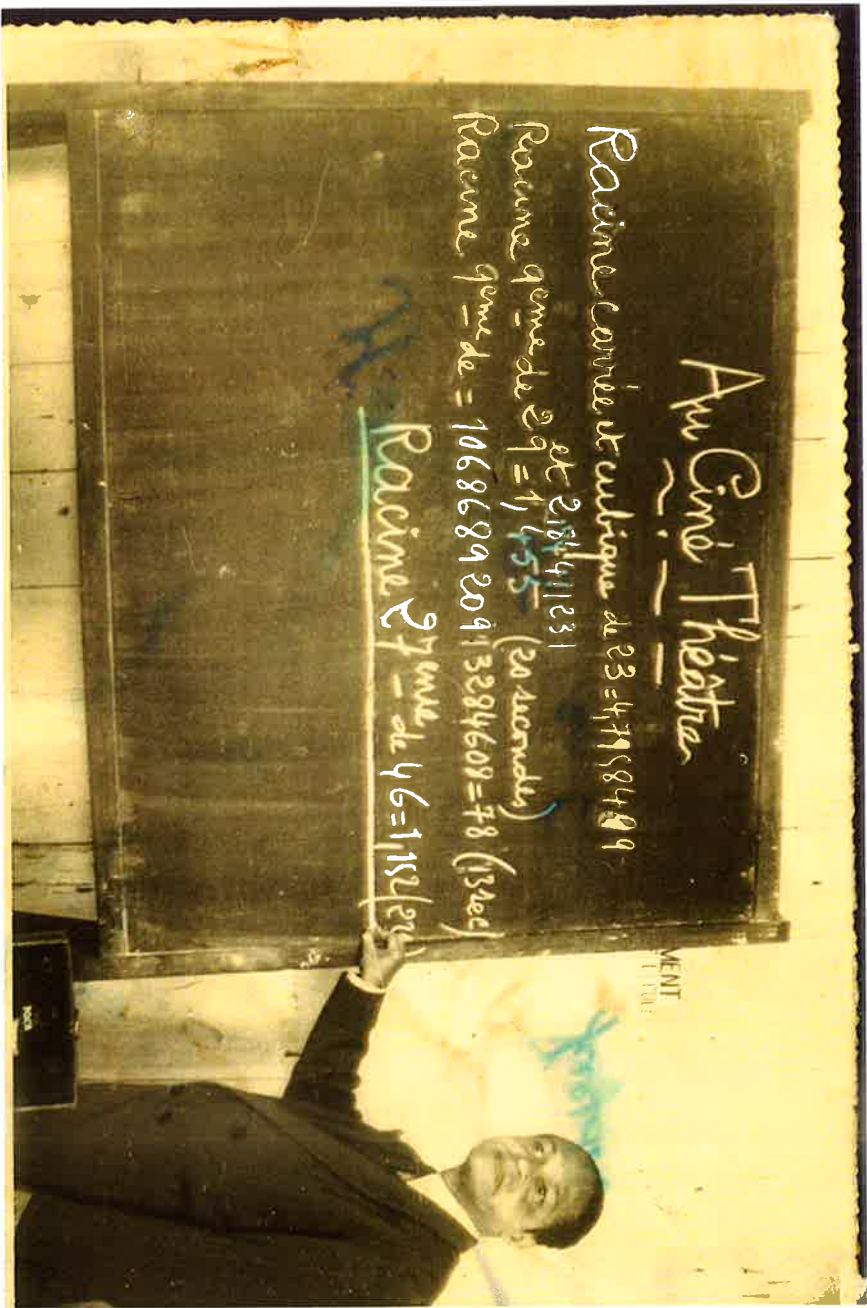 Au Ciné Théâtre
Racine carrée et cubique de 23 = 4,79584499
et 2,84411231
Racine 9eme de 29 = 1,455 (20 secondes)
Racine 9eme de = 10686892091 3284608 = 78 (13 sec)
Racine 27eme de 46 = 1,152 (22
MENT